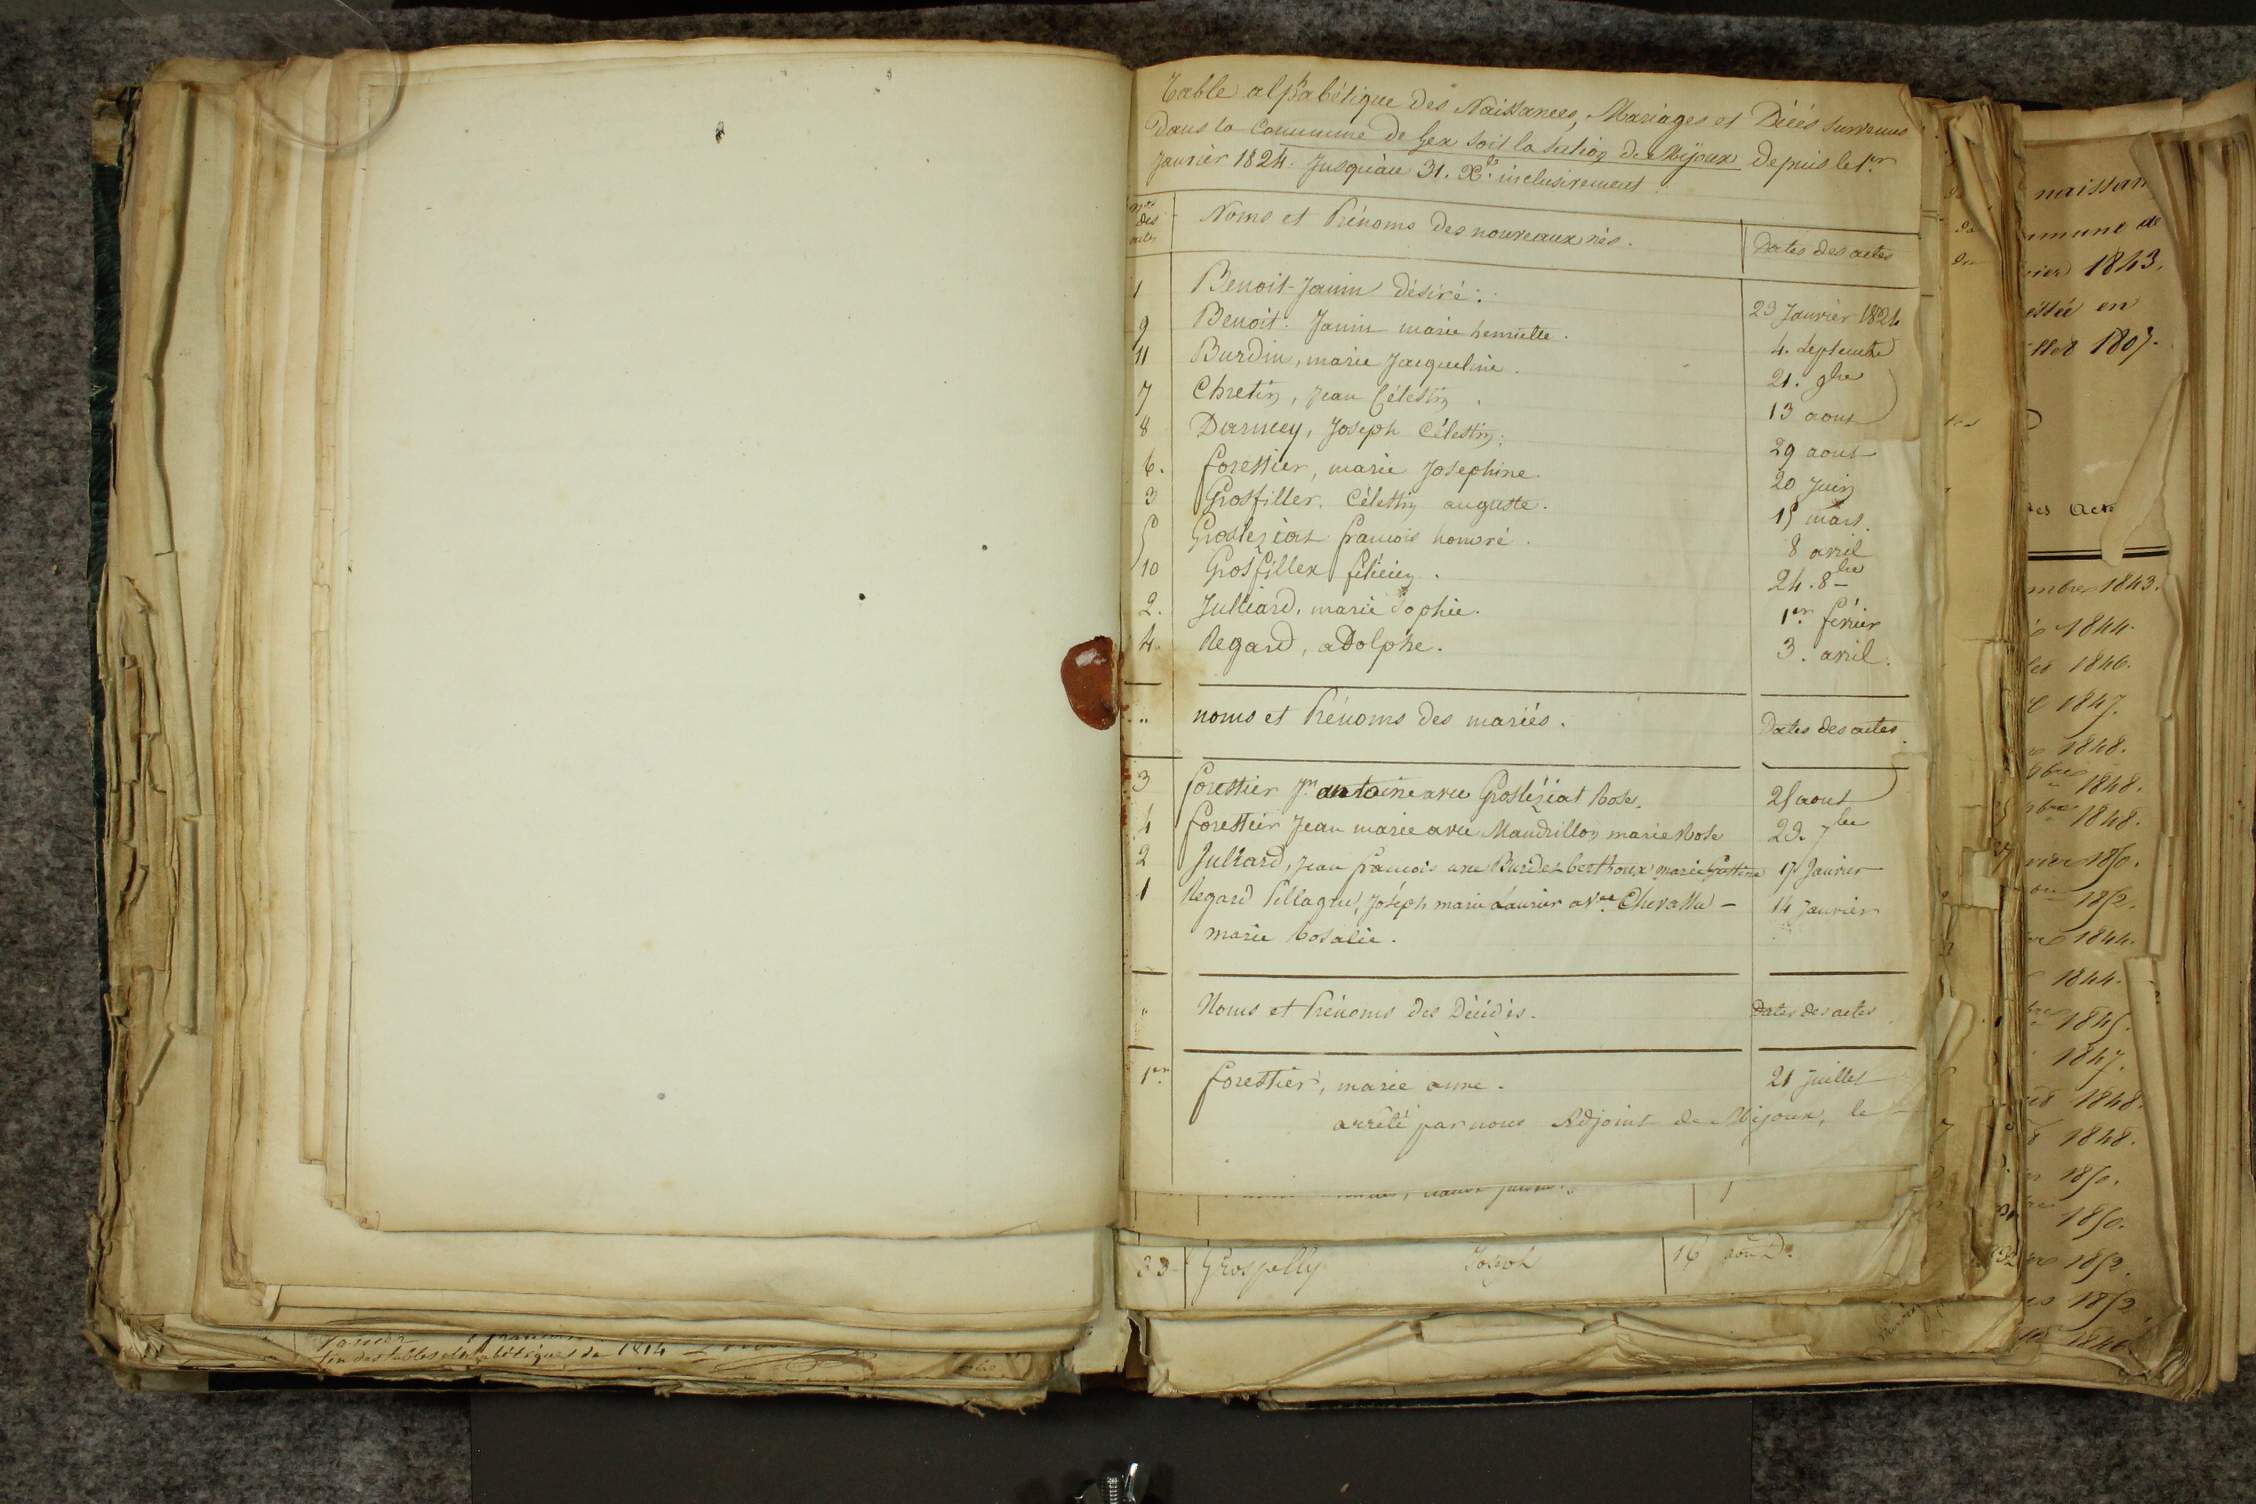 Table alphabétique des Naissances, Mariages et Décés survenus
dans la Commune de Gex soit la section de Mijoux depuis le 1er
Janvièr 1824. Jusqu'au 31. Xbre inclusivement
nos des actes Noms et Prénoms des nouveaux nés. Dates des actes
1 Benoit-Janin désiré. 23 Janvièr 1824
9 Benoit-Janin marie henriette. 4. septembre
11 Burdin, marie Jacqueline. 21. 9bre
7 Chretin, Jean Célestin. 13 aout
8 Darmey, Joseph Célestin. 29 aout
6. forestier, marie Josephine. 20 Juin
3 Grosfiller. Célestin auguste. 15 mars.
5 Grosleziat francois honoré. 8 avril
10 Grosfillex félicien. 24. 8bre
2. Julliard, marie Sophie. 1er février
4. Regard, adolphe. 3. avril.
" noms et Prénoms des mariés. Dates des actes.
3 forestier Jn antoine avec Grosléziat Rose. 25 aout
4 forestier Jean marie avec Mandrillon marie Rose 23. 7bre
2 Julliard, Jean francois avec Burdet berthoux marie 17 Janvier
1 Regard Pillagre, Joséph marie avec Chevassu - 14 Janvier
marie Rosalie.
" Noms et Prénoms des Décédés. Dates des actes
1er forestier, marie anne. 21 Juillet
arrêté par nous Adjoint de Mijoux, le
33 Grospelly Joseph 16 aout
fin des tables alphabétiques de 1814
naissan
mmune de
1843.
en
1807.
des Act
mbre 1843.
1844.
1846.
1847.
1848.
9bre 1848.
1848.
1850.
1852.
1844.
1844.
1845.
1847.
1848.
1848.
1850.
1850.
1852.
1852
1846